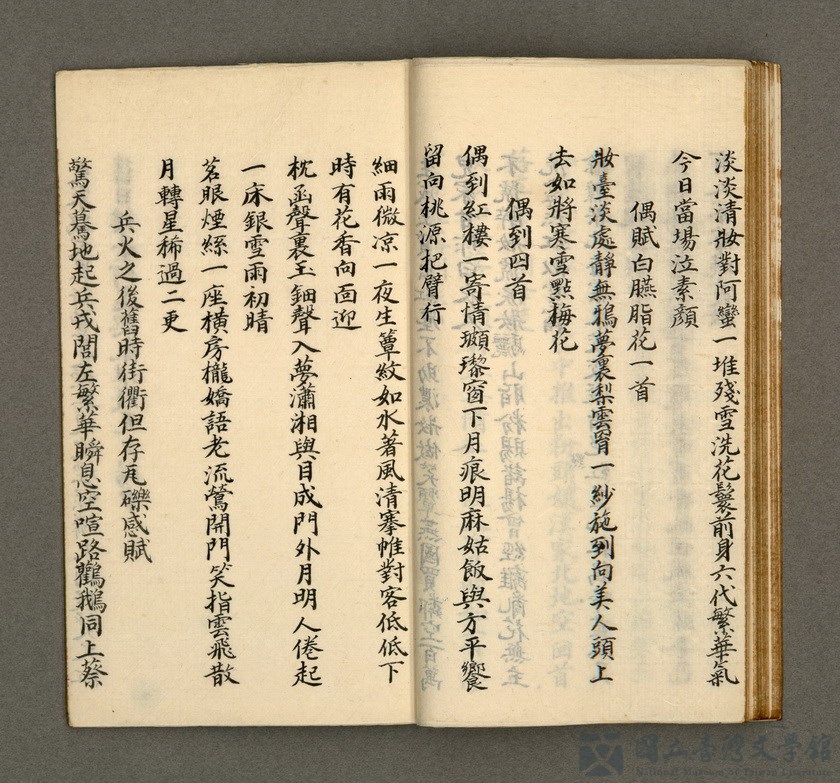 淡淡清妝對阿蠻一堆殘雪洗花鬟前身六代繁華氣
今日當場泣素顏
偶賦白臙脂花一首
妝臺淡處靜無鴉夢裏梨雲罥一紗施到向美人頭上
去如將寒雪點梅花
偶到四首
偶到紅樓一寄情瓓璨窗下月痕明麻姑飯與方平饗
留向桃源把臂行
細雨微凉一夜生簟紋如水著風清搴帷對客低低下
時有花香向面迎
枕函聲裏玉鈿聲入夢瀟湘與目成門外月明人倦起
一床銀雪雨初晴
茗眼煙絲一座橫房櫳嬌語老流鶯開門笑指雲飛散
月轉星稀過二更
兵火之後舊時街衢但存瓦礫感賦
驚天驀地起兵戎閭左繁華瞬息空喧路鸛鵝同上蔡
國立臺灣文學館
National Museum of Taiwan Literature